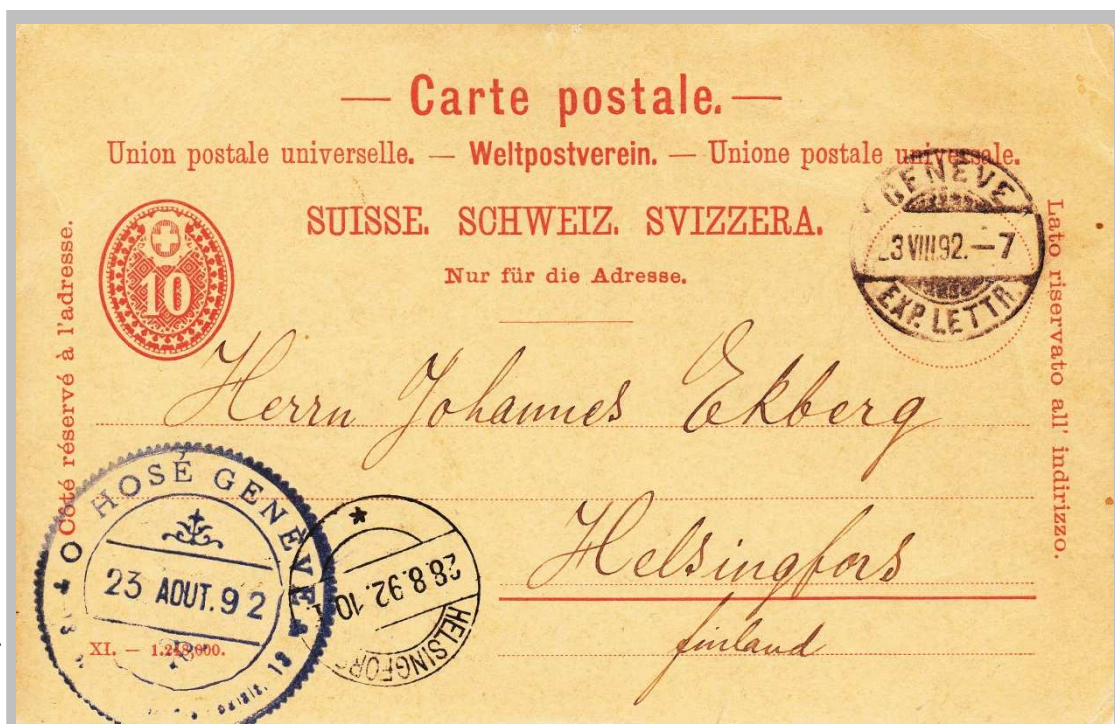 — Carte postale. —
Union postale universelle. — Weltpostverein. — Unione postale universale.
SUISSE. SCHWEIZ. SVIZZERA.
Nur für die Adresse.
10
GENÈVE
23 VIII.92.—7
EXP. LETTR.
Côté réservé à l'adresse.
Lato riservato all' indirizzo.
Herrn Johannes Ekberg
Helsingfors
finland
O HOSÉ GENÈVE
23 AOUT. 92
28.8.92. 10
HELSINGFORS
XI. — 1.248,000.